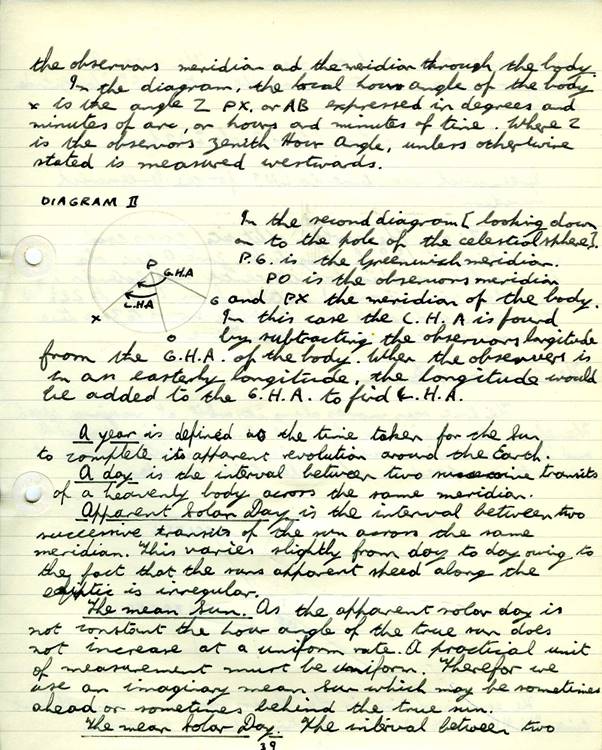 the observors meridian and the meidian through the body.
In the diagram, the local hour angle of the body
x is the angle Z PX, or AB expressed in degrees and
minutes of arc, or hours and minutes of time. Where Z
is the observors zenith Hour Angle, unless otherwise
stated is measured westwards.
DIAGRAM II
In the second diagram [ looking down
on to the pole of the celestial sphere ].
P.G. is the Greenwich meridian.
PO is the observors meridian
and PX the meridian of the body.
In this case the L.H.A is found
by subtracting the observors longitude
P
G.H.A
L.HA
G
X
O
from the G.H.A. of the body. When the observer is
in an easterly longitude, the longitude would
be added to the G.H.A. to find L.H.A.
A year is defined as the time taken for the Sun
to complete its apparent revolution around the Earth.
A day is the interval between two successive transits
of a heavenly body across the same meridian.
Apparent Solar Day is the interval between two
successive transits of the sun across the same
meridian. This varies slightly from day to day owing to
the fact that the suns apparent speed along the
ecliptic is irregular.
The mean Sun. As the apparent solar day is
not constant the hour angle of the true sun does
not increase at a uniform rate. A practical unit
of measurement must be uniform. Therefor we
use an imaginary mean Sun which may be sometimes
ahead or sometimes behind the true sun.
The mean Solar Day. The interval between two
39